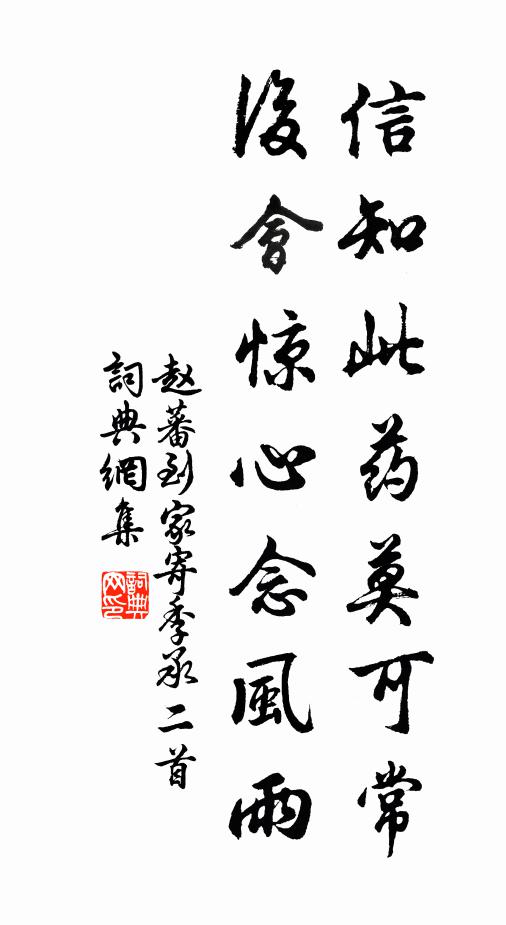 信知此药莫可常
後會惊心念風雨
赵蕃到家寄季承二首
詞典網集
詞典网印